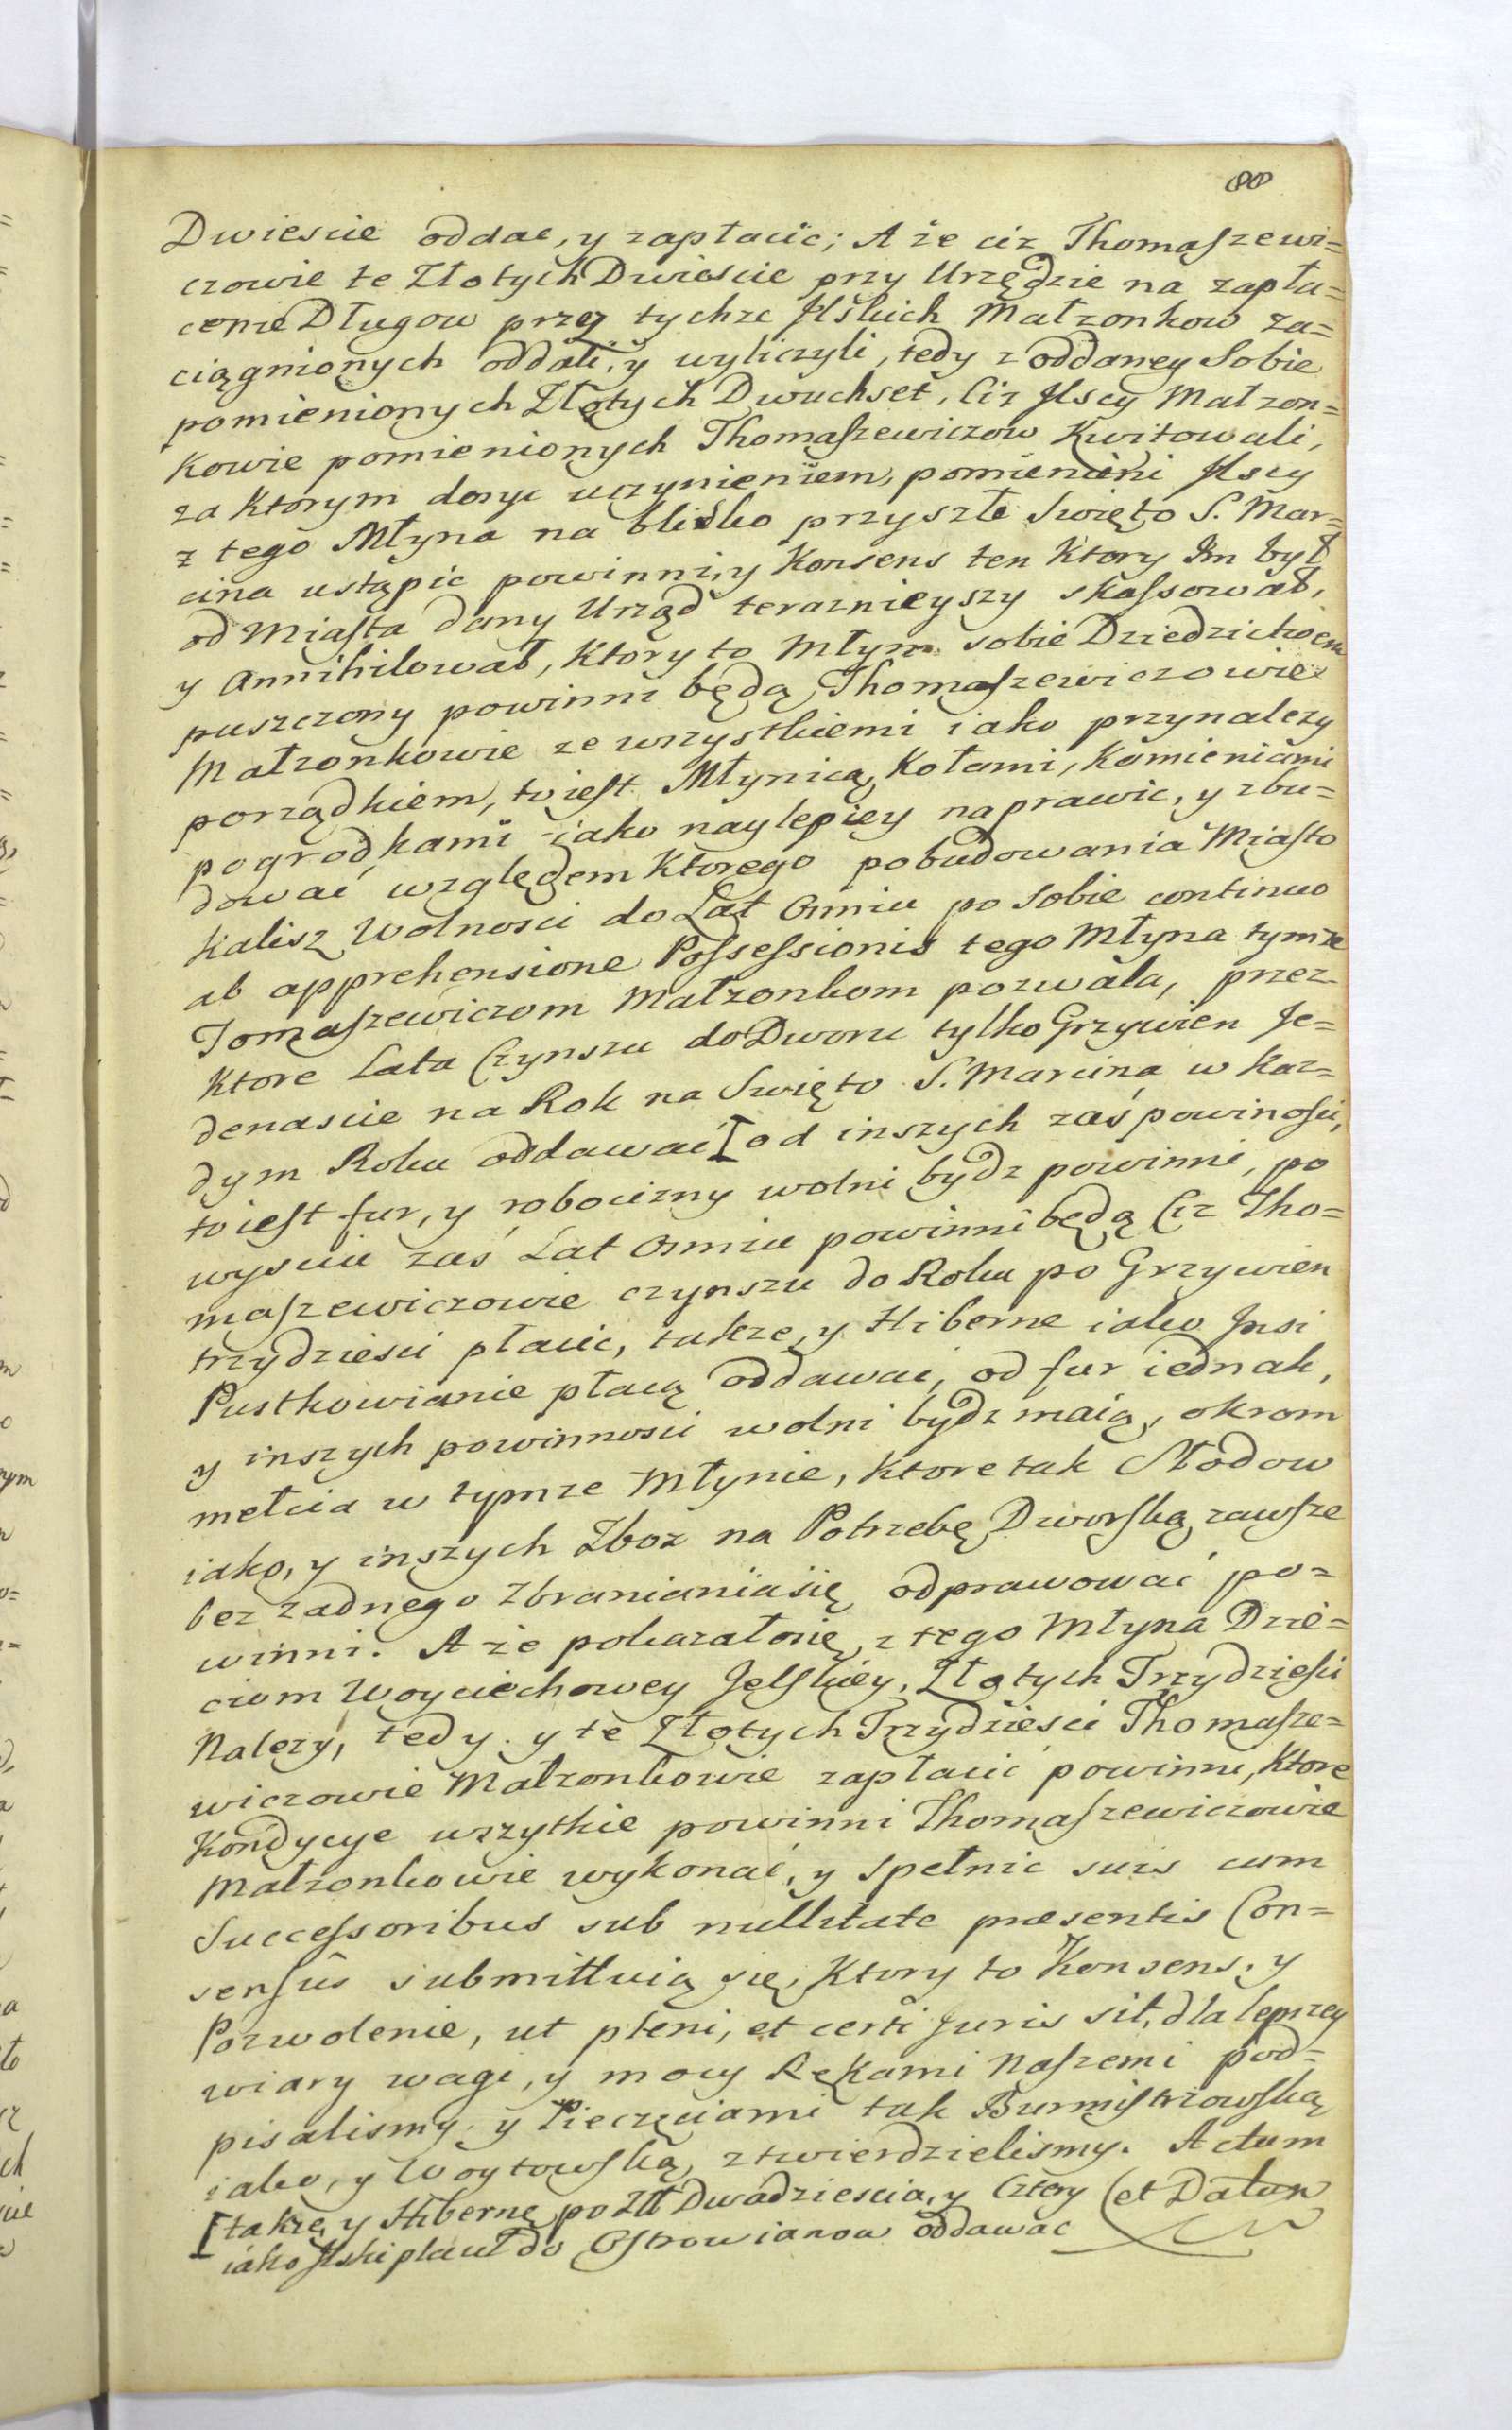 88
Dwiescie oddac, y zapłacic; A że ciz Thomaszewi=
czowie te Złotych Dwiescie przy Urzędzie na zapła=
cenie Długow przez tychze Jlskich Małzonkow za=
ciągnionych oddali, y wyliczyli, tedy z oddaney Sobie
pomienionych Złotych Dwuchset, Ciz Jlscy Małzon=
kowie pomienionych Thomaszewiczow Kwitowali,
za ktorym dosyc uczynieniem, pomienieni Jlscy
z tego Młyna na blisko przyszłe Swięto S. Mar=
cina ustąpic powinni, y Konsens ten ktory Im był
od Miasta dany Urząd teraznieyszy skassował,
y Annihilował, ktory to Młyn sobie Dziedzictwem
puszczony powinni będą Thomaszewiczowie
Małzonkowie ze wszystkiemi iako przynalezy
porządkiem, to iest Młynicą, Kołami, Kamieniami
pogrodkami iako naylepiey naprawic, y zbu=
dowac względem ktorego pobudowania Miasto
Kalisz Wolnosci do Lat Osmiu po sobie continuo
ab apprehensione Possessionis tego Młyna tymze
Tomaszewiczom Małzonkom pozwala, przez
ktore Lata Czynszu do Dworu tylko Grzywien Je=
denascie na Rok na Swięto S. Marcina w kaz=
dym Roku oddawać [od inszych zaś powinosci,
to iest fur, y robocizny wolni bydz powinni, po
wysciu zaś Lat Osmiu powinni będą Ciz Tho=
maszewiczowie czynszu do Roku po Grzywien
trzydziesci płacic, takze, y Hiberne iako Jnsi
Pustkowianie płacą oddawac, od fur iednak,
y inszych powinnosci wolni bydz maią, okrom
mełcia w tymze Młynie, ktore tak Słodow
iako, y inszych Zboz na Potrzebę Dworską zawsze
bez zadnego zbraniania się odprawować po=
winni. A że pokazało się z tego Młyna Dzie=
ciom Woyciechowey Jelskiey, Złotych Trzydziesci
Nalezy, tedy y te Złotych Trzydziesci Thomasze=
wiczowie Małzonkowie zapłacić powinni, ktore
Kondycye wszytkie powinni Thomaszewiczowie
Małzonkowie wykonać, y spełnic suis cum
Successoribus sub nullitate præsentis Con=
sensûs submittuią się, ktory to Konsens, y
Pozwolenie, ut pleni, et certi Juris sit, dla lepszey
wiary wagi, y mocy Rękami Naszemi pod=
pisalismy, y Pieczęciami tak Burmistrzowską
iako, y Woytowską, ztwierdzielismy. Actum
et Datum
[takze, y Hibernę po Złł Dwadziescia, y Cztery
iako Jlski płacił do Ostrowianow oddawac